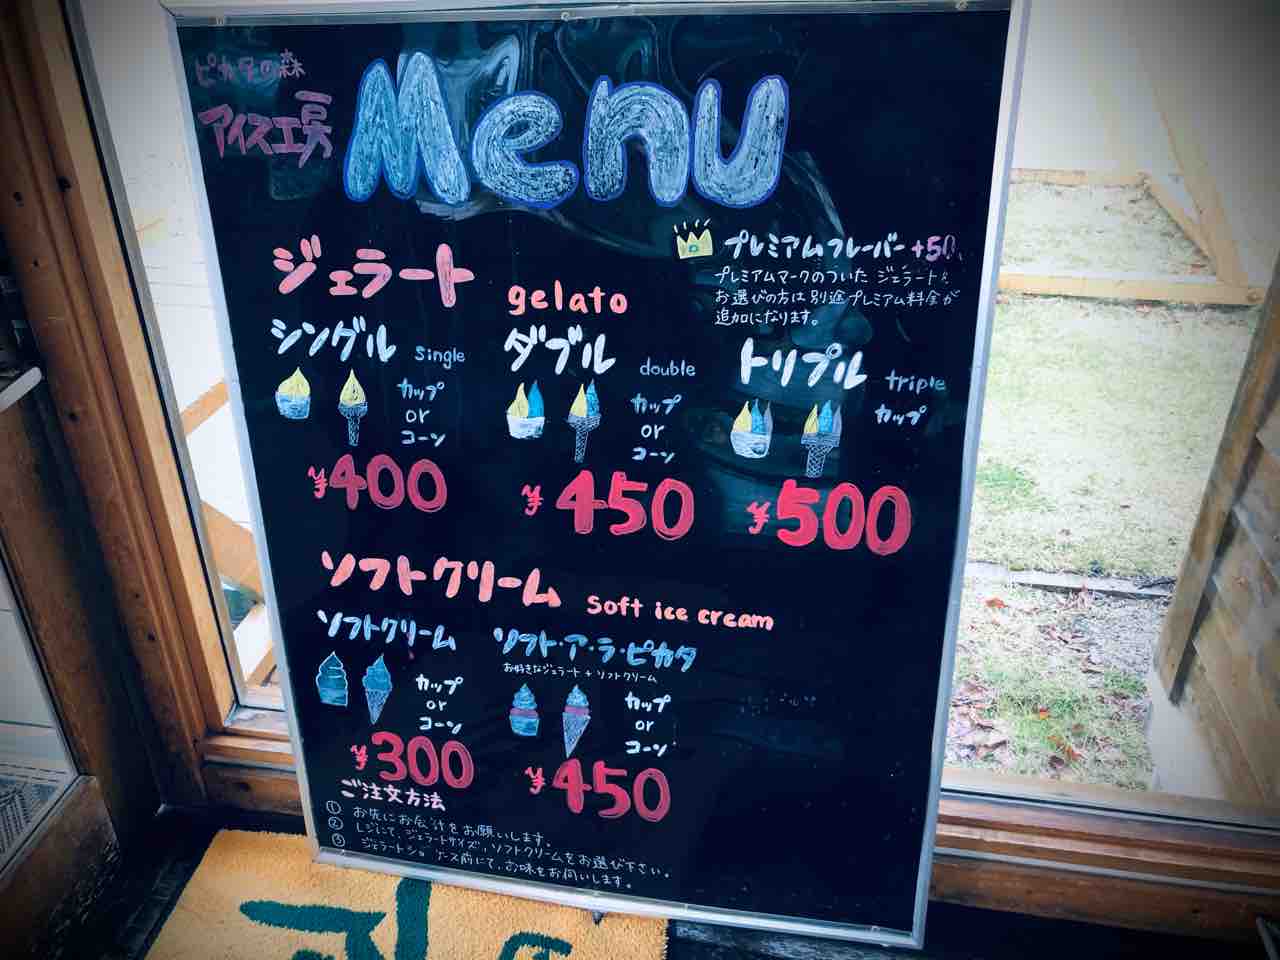 ピカタの森
アイス工房
Menu
プレミアムフレーバー +50
プレミアムマークのついた ジェラートを
お選びの方は 別途プレミアム料金が
追加になります。
ジェラート gelato
シングル single
カップ
or
コーン
¥400
ダブル double
カップ
or
コーン
¥450
トリプル triple
カップ
¥500
ソフトクリーム soft ice cream
ソフトクリーム
カップ
or
コーン
¥300
ソフト・ア・ラ・ピカタ
お好きなジェラート + ソフトクリーム
カップ
or
コーン
¥450
ご注文方法
① お先にお会計をお願いします。
② レジにて、ジェラートサイズ、ソフトクリームをお選び下さい。
③ ジェラートショーケース前にて、お味をお伺いします。